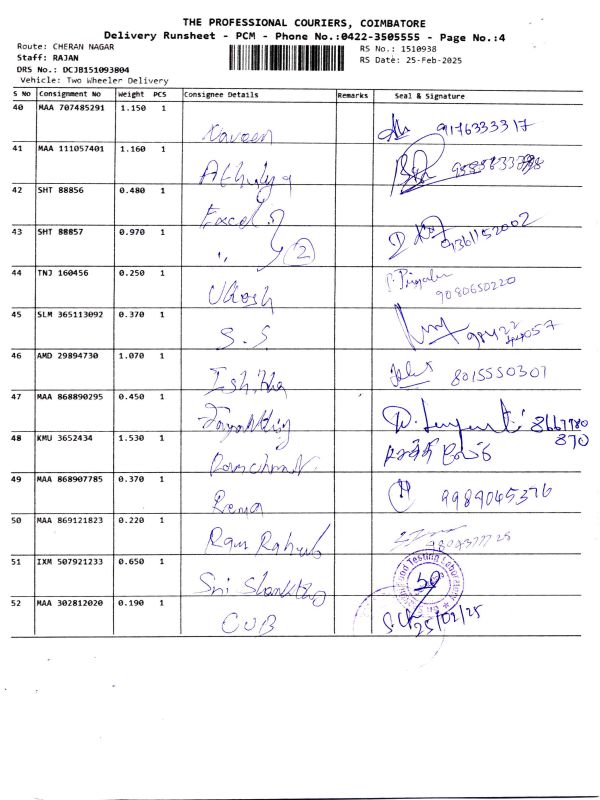 THE PROFESSIONAL COURIERS, COIMBATORE
Delivery Runsheet - PCM - Phone No.:0422-3505555 - Page No.:4
Route: CHERAN NAGAR
RS No.: 1510938
Staff: RAJAN
RS Date: 25-Feb-2025
DRS No.: DCJB151093804
Vehicle: Two Wheeler Delivery
S No Consignment No Weight PCS Consignee Details Remarks Seal & Signature
40 MAA 707485291 1.150 1 Naveen 9176333317
41 MAA 111057401 1.160 1 Athulya
42 SHT 88856 0.480 1 Excel
43 SHT 88857 0.970 1 " 2 9361152002
44 TNJ 160456 0.250 1 Ukosh 9080650220
45 SLM 365113092 0.370 1 S.S
46 AMD 29894730 1.070 1 Ishitha 8015550307
47 MAA 868890295 0.450 1 8667780
870
48 KMU 3652434 1.530 1
49 MAA 868907785 0.370 1 Rema 9989045376
50 MAA 869121823 0.220 1 Ram Rahul
51 IXM 507921233 0.650 1 Sri Testing Laboratory
52 MAA 302812020 0.190 1 CUB 25/02/25